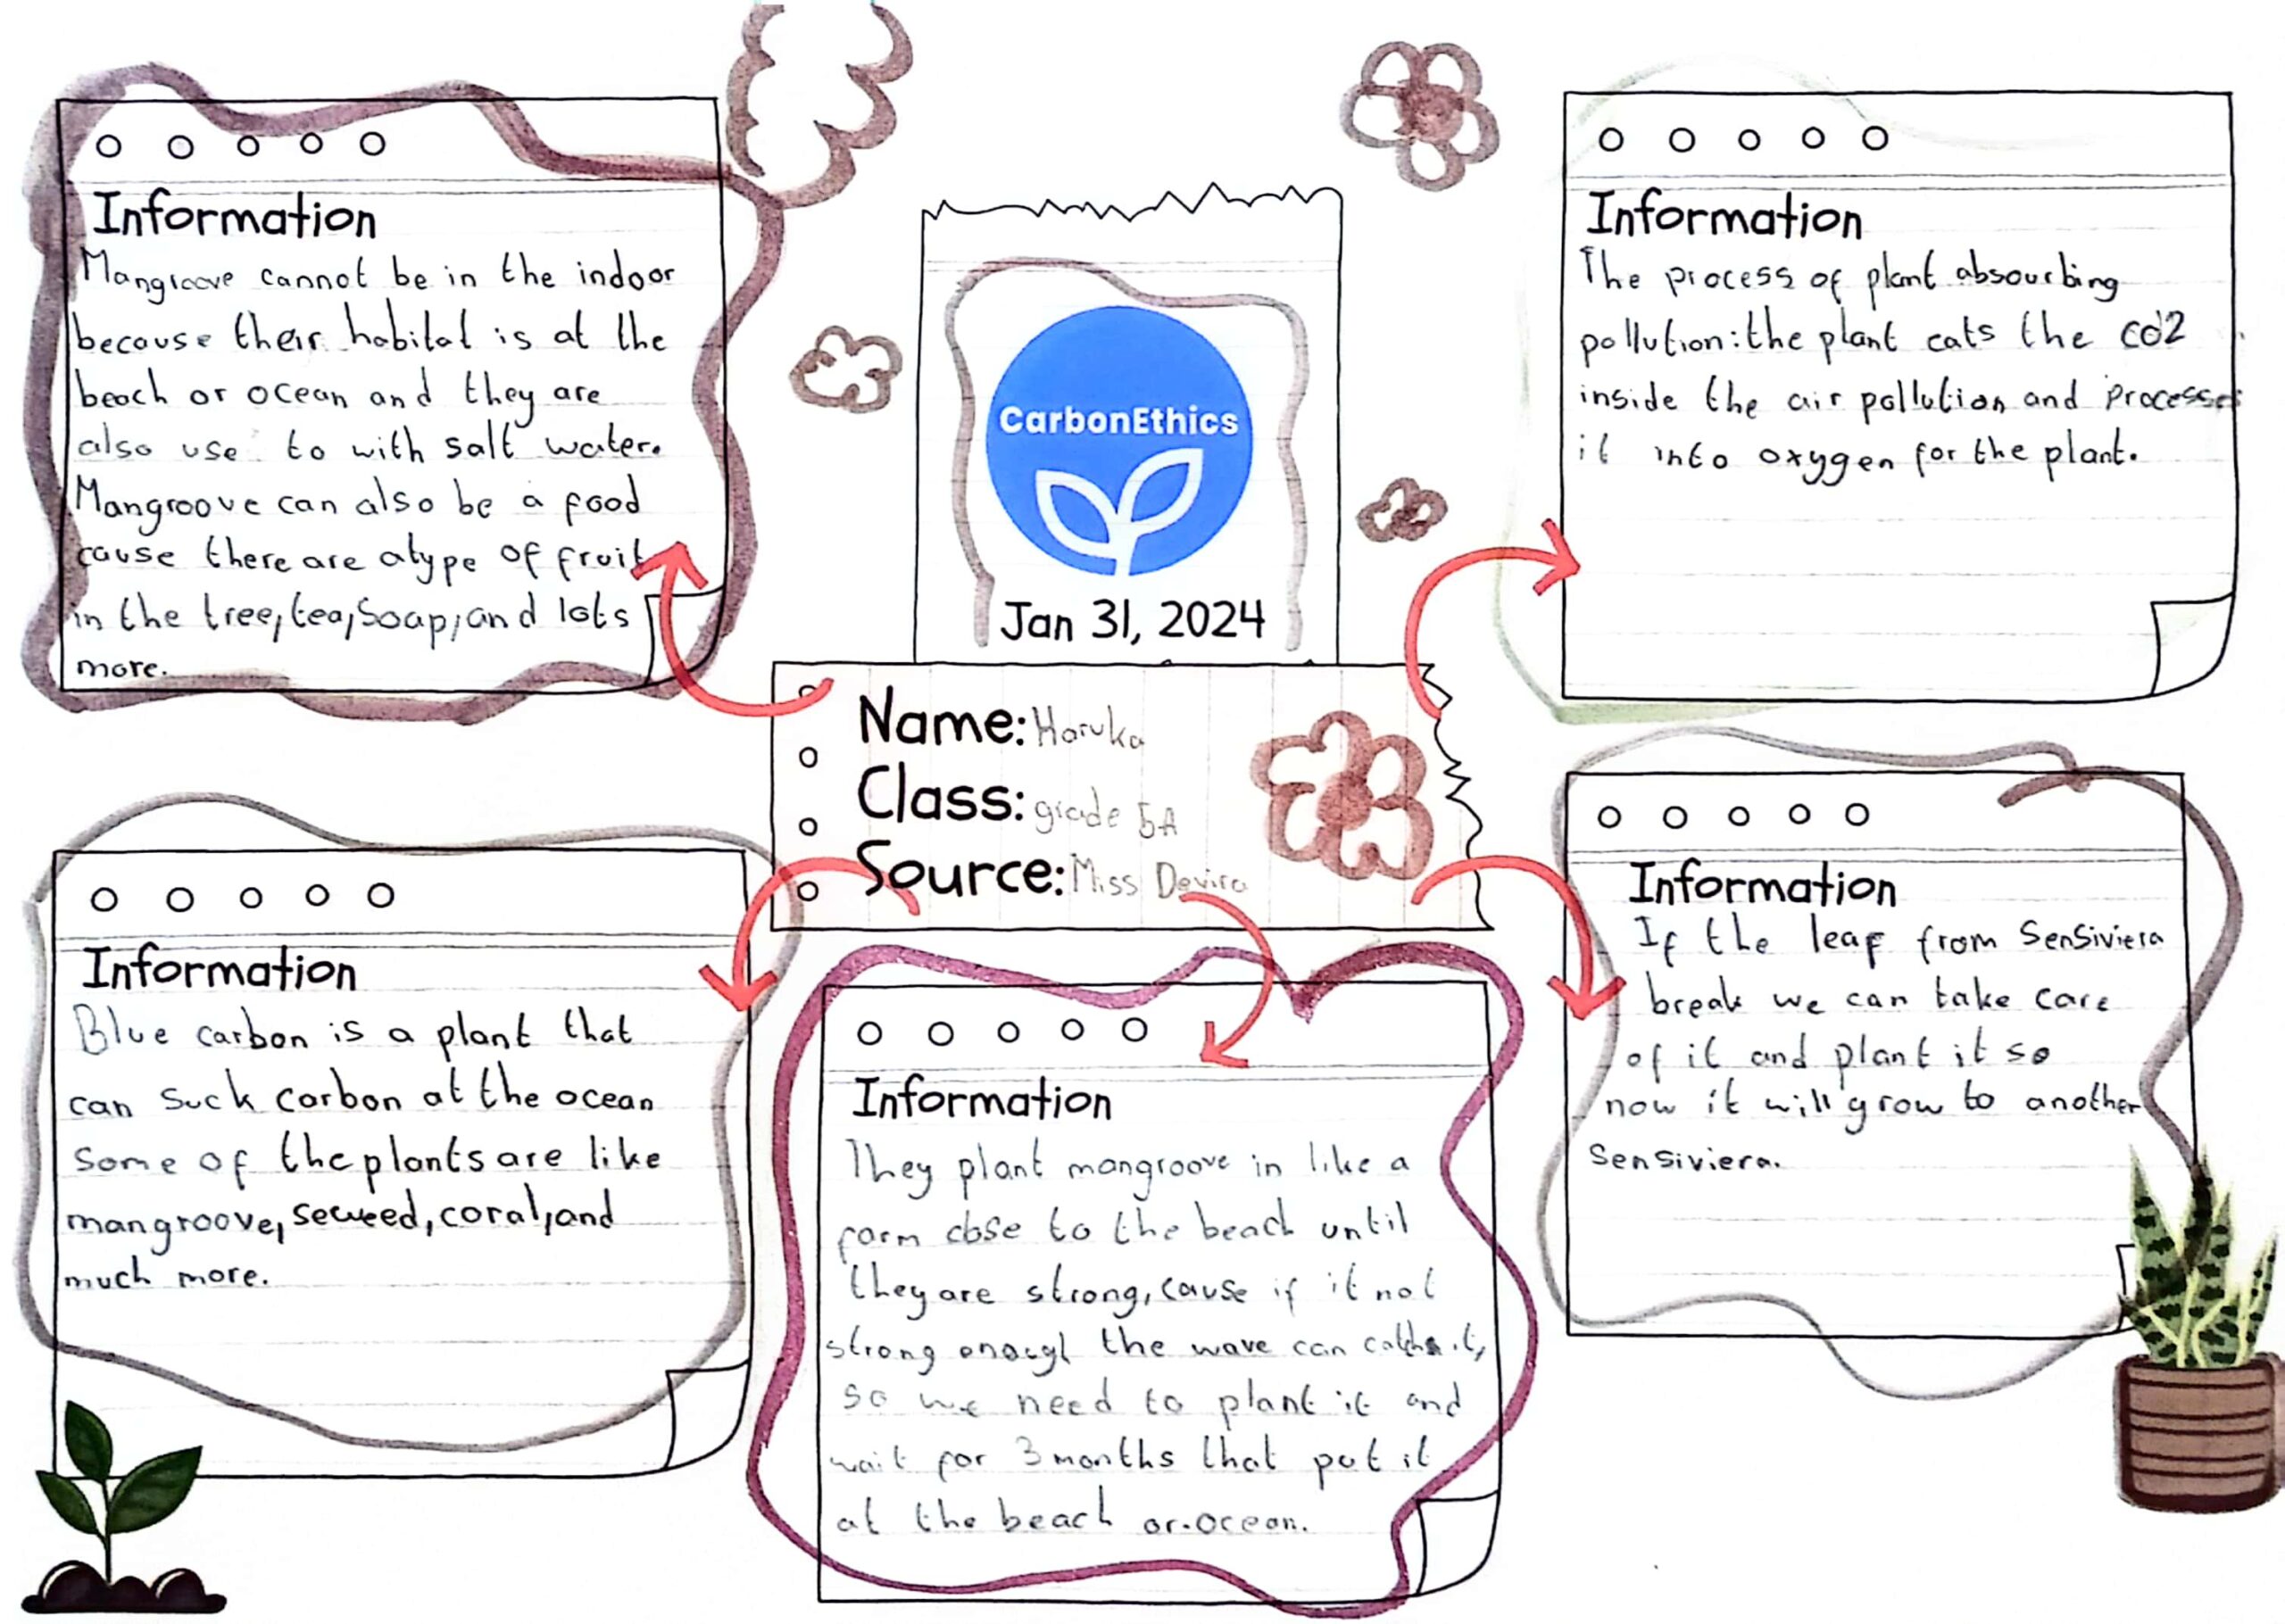 Information
Mangroove cannot be in the indoor
because their habitat is at the
beach or ocean and they are
also use to with salt water.
Mangroove can also be a food
cause there are atype of fruit
in the tree, tea, Soap, and lots
more.
CarbonEthics
Jan 31, 2024
Information
The process of plant absourbing
pollution: the plant eats the co2
inside the air pollution and processes
it into oxygen for the plant.
Name: Haruka
Class: grade 5A
Source: Miss Devira
Information
Blue carbon is a plant that
can suck carbon at the ocean
Some of the plants are like
mangroove, seweed, coral, and
much more.
Information
They plant mangroove in like a
farm close to the beach until
they are strong, cause if it not
strong enough the wave can it,
so we need to plant it and
wait for 3 months that put it
at the beach or ocean.
Information
If the leaf from Sensiviera
break we can take care
of it and plant it so
now it will grow to another
Sensiviera.